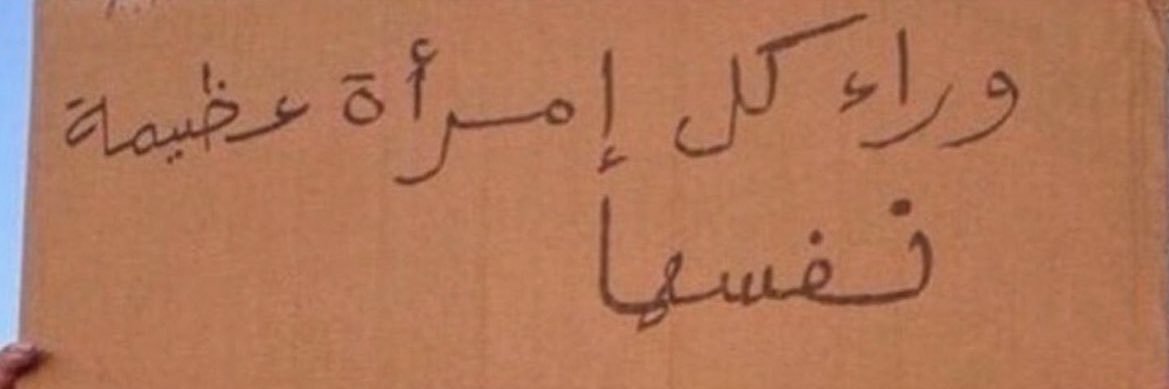 وراء كل إمرأة عظيمة
نفسها